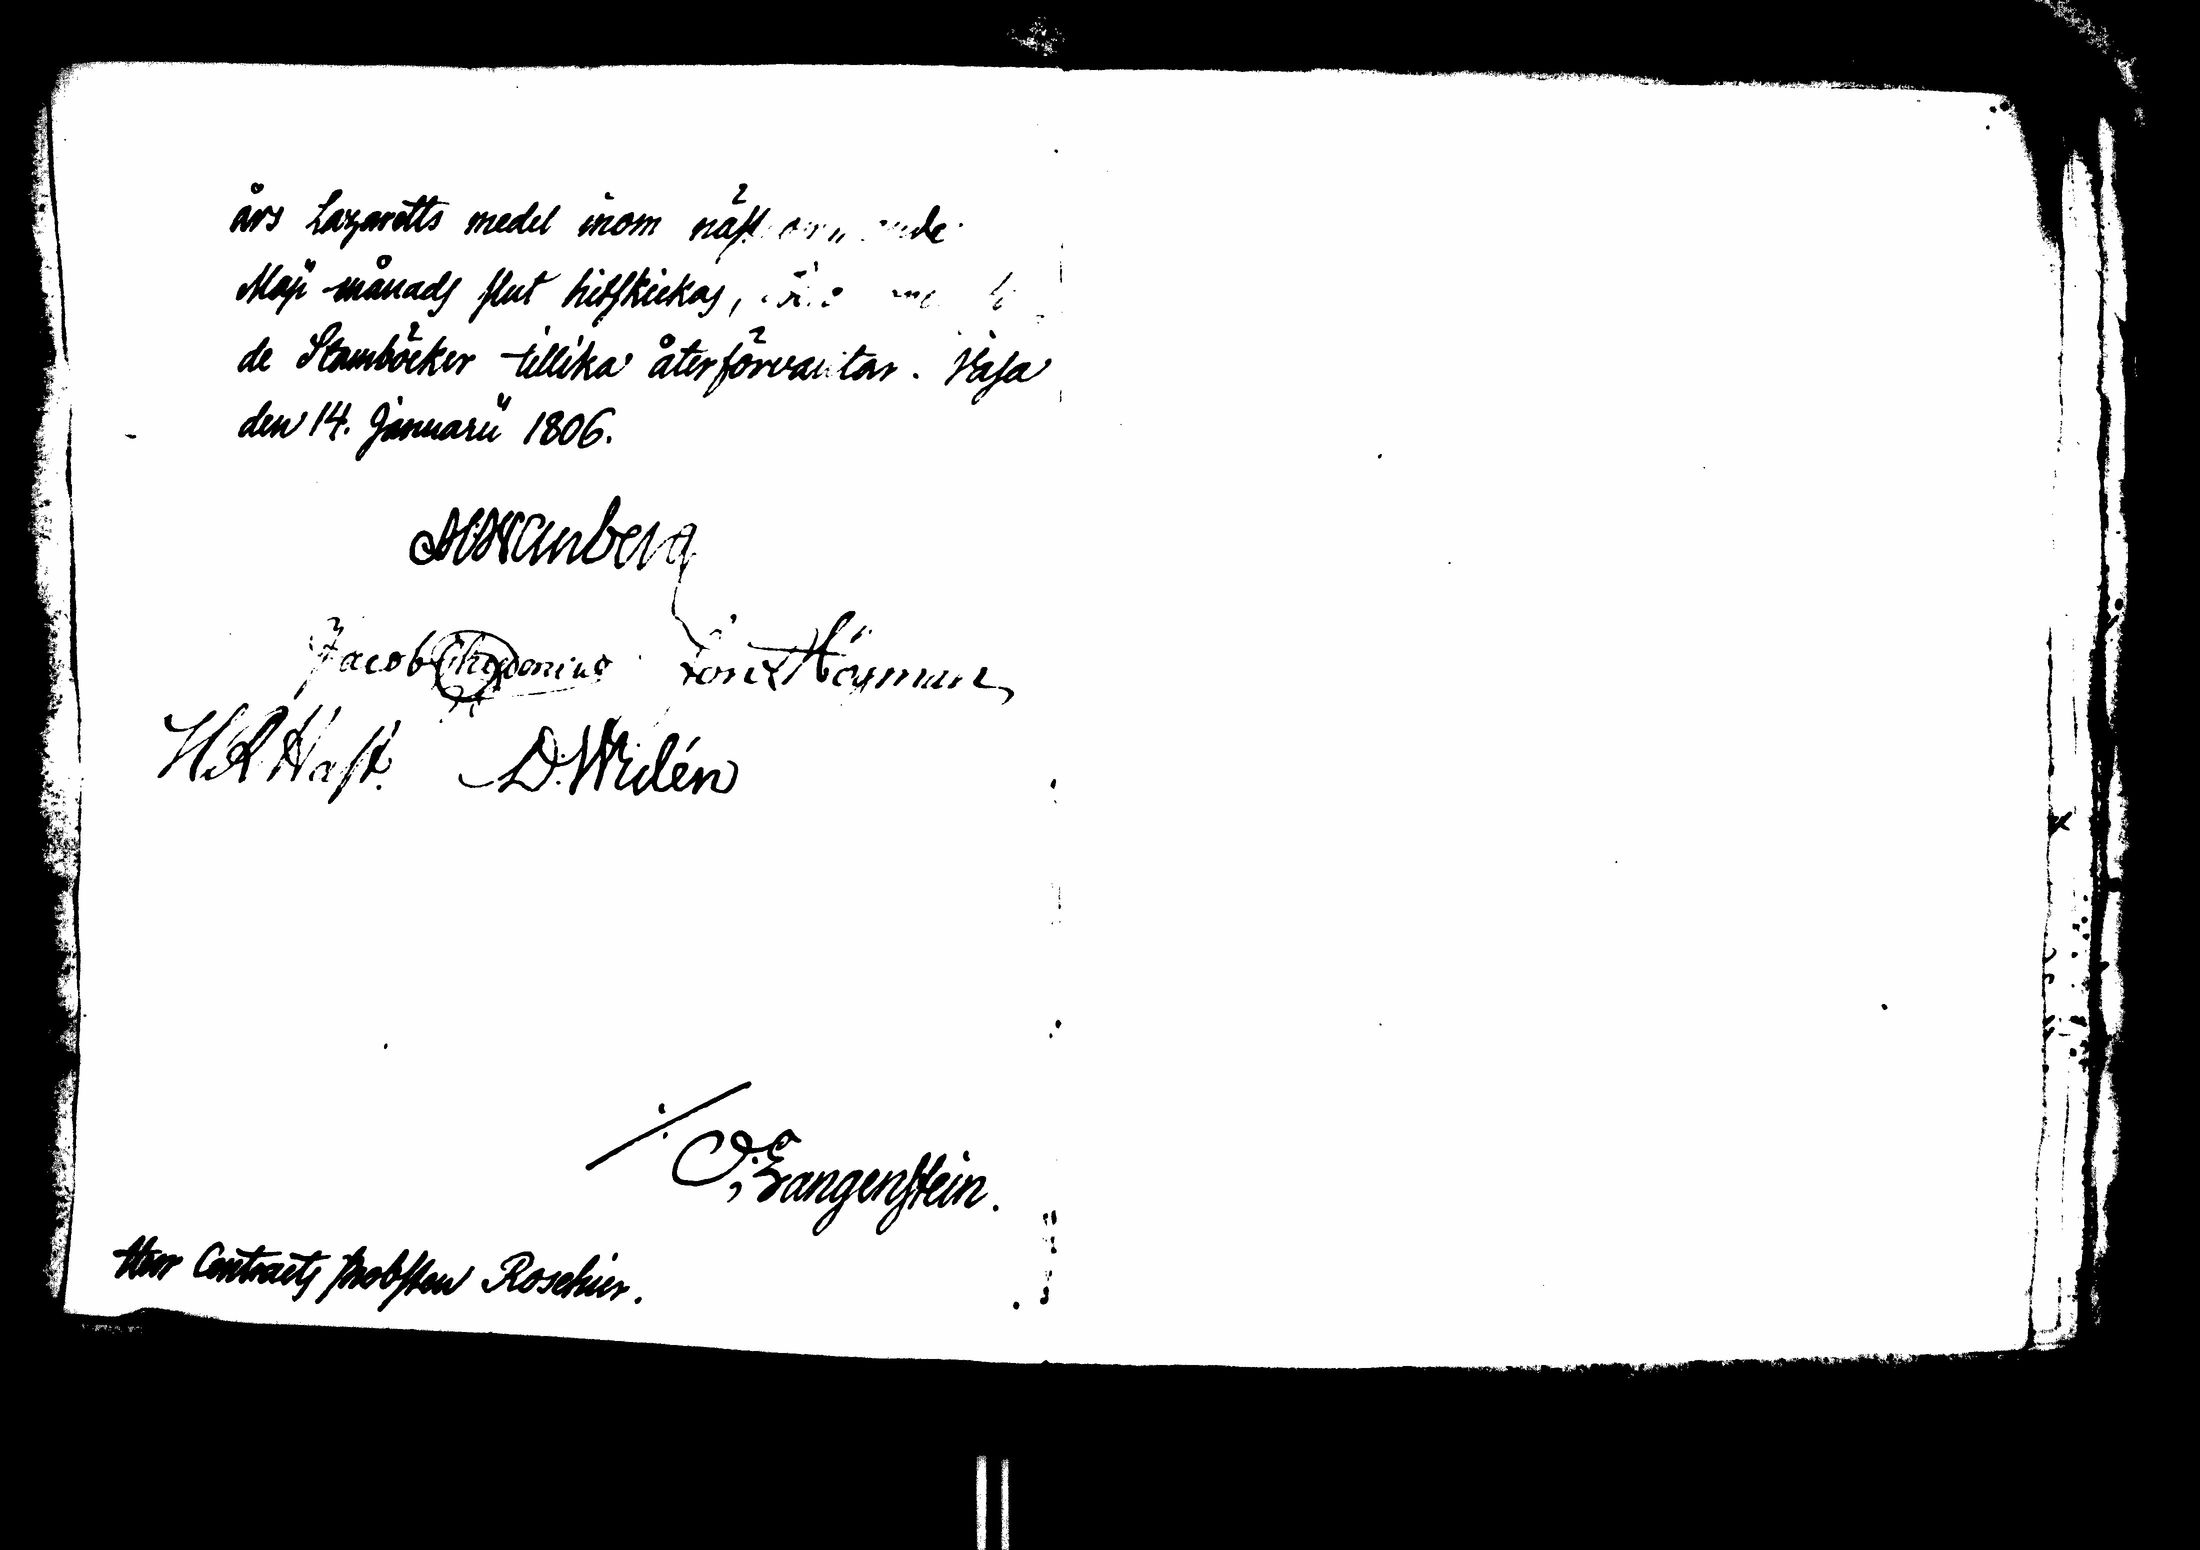 års Lazaretts medel inom näst
Maji månads slut hitskickas,
de Stamböcker tillika återförväntar. Wasa
den 14. Januarii 1806.
Wanberg
Jacob Chydenius Höckman
H. R. Hast. D. Widén
./. O. Langenstein.
Herr Contracts Probsten Roschier.